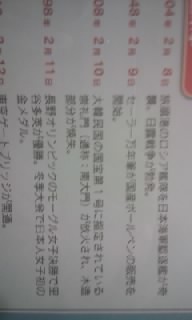 04年2月8日
旅順港のロシア艦隊を日本海軍駆逐艦が奇
襲。日露戦争が勃発。
48年2月9日
セーラー万年筆が国産ボールペンの販売を
開始。
08年2月10日
大韓民国の国宝第1号に指定されている
崇礼門(通称:南大門)が放火され、木造
部分が焼失。
98年2月11日
長野オリンピックのモーグル女子決勝で里
谷多英が優勝。冬季大会で日本人女子初の
金メダル。
2月12
東京ゲートブリッジが開通。